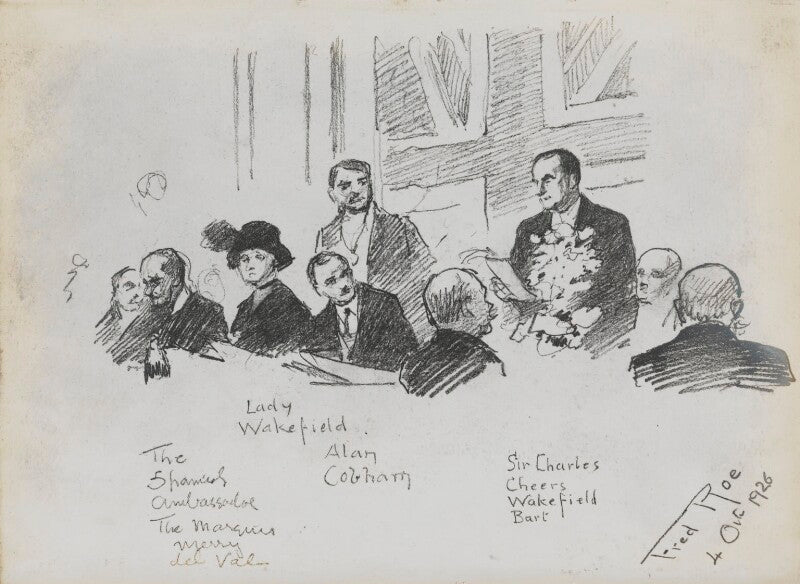 Lady
Wakefield.
The
Spanish
Ambassador
The Marquis
Merry
del Val
Alan
Cobham
Sir Charles
Cheers
Wakefield
Bart
Fred Roe
4 Oct 1926